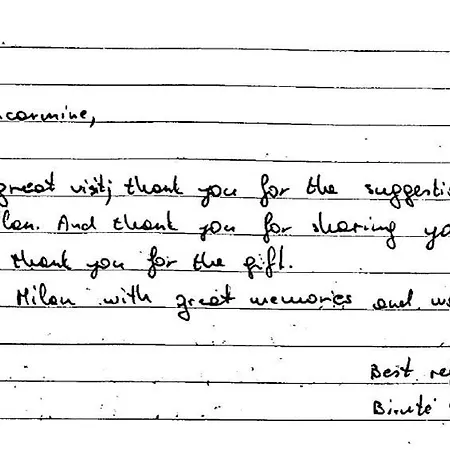 ncarmine,
great visit; thank you for the suggesti
lan. And thank you for sharing yo
thank you for the gift.
Milan with great memories and w
Best re
Birutė